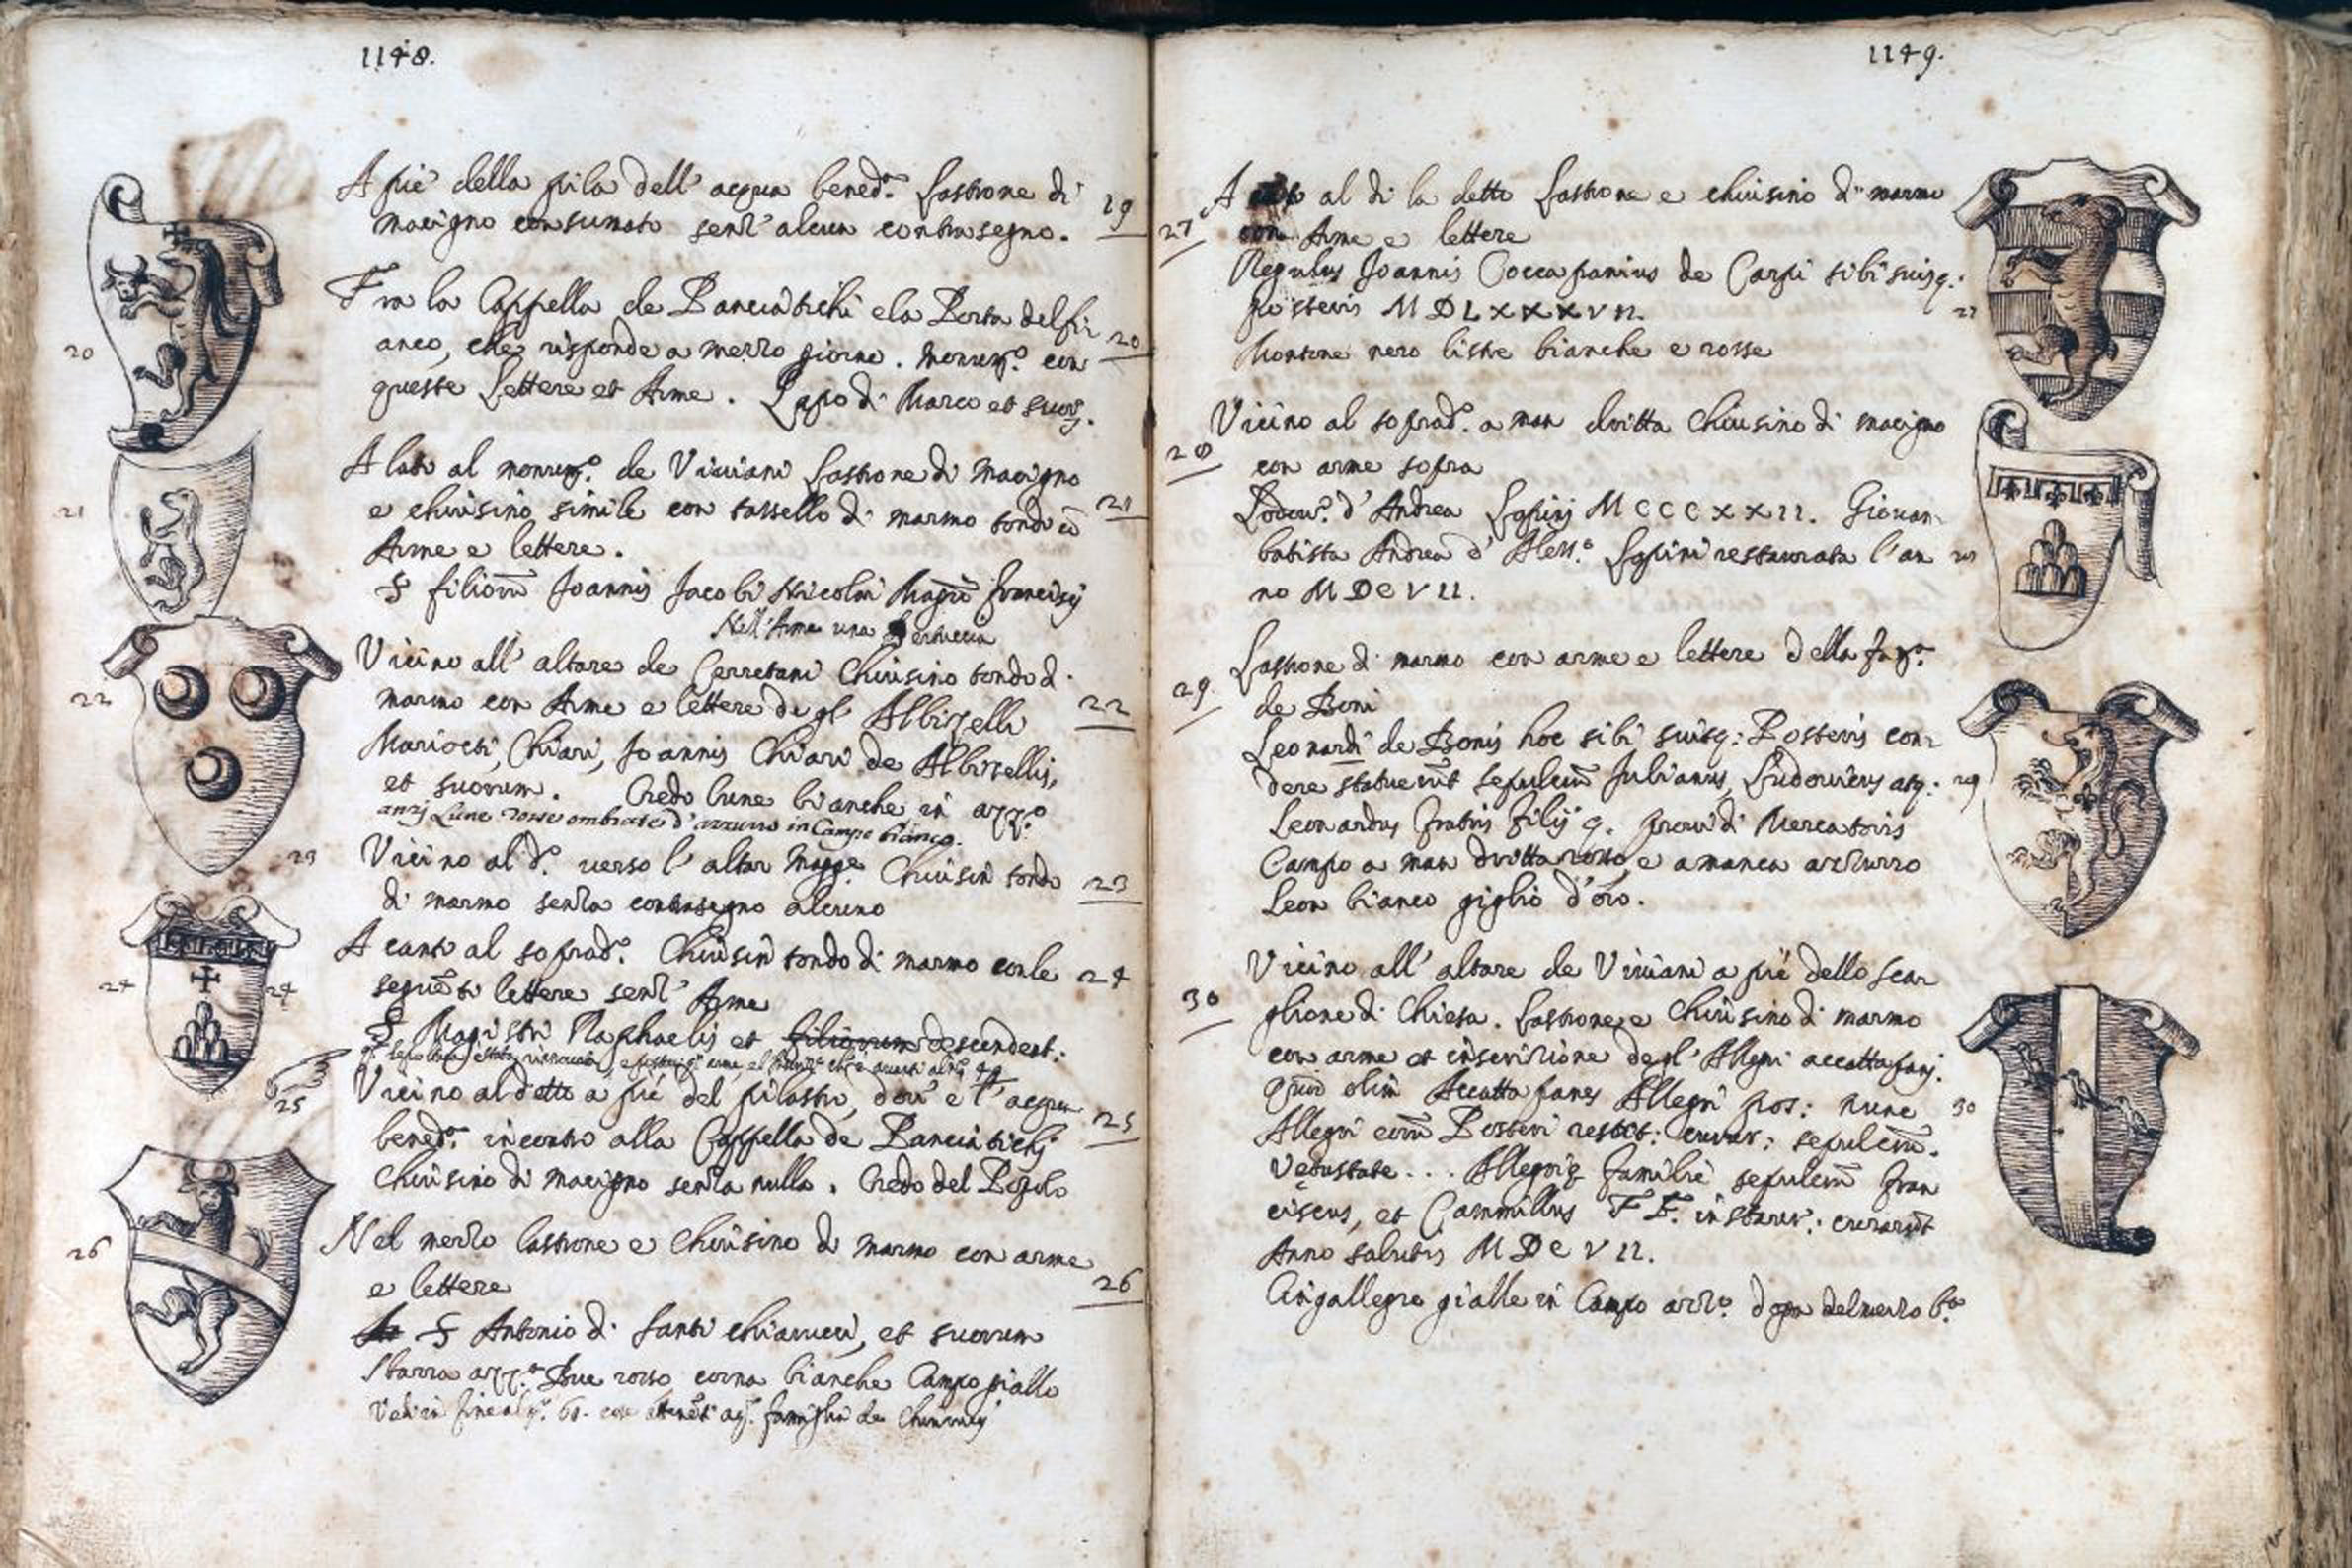 1148.
A piè della pila dell' acqua bened.ª Lastrone di
macigno consumato senz' alcun contrasegno. 19
Fra la Cappella de Panciatichi e la Porta del fi
anco, che risponde a mezzo giorno. monum.º con 20
queste Lettere et Arme. Lapo di Marco et suor.
20
A lato al monum.º de Viviani Lastrone di macigno
e chiusino simile con tassello di marmo tondo cō 21
Arme e lettere.
21
S filiorū Joannis Jacobi Nicolai Magrī Francisci
Nell' Arme una Bertuccia
Vicino all' altare de Cerretani Chiusino tondo di
marmo con Arme e lettere degl' Albizelli 22
22
Mariotti, Chiari, Joannis Chiari de Albizellis,
et suorum. Credo lune bianche in azz.º
anzi Lune rosse ombrate d'azzurro in Campo bianco.
23
Vicino al d.º verso l' altar magg.e Chiusin tondo
di marmo senza contrasegno alcuno 23
A canto al soprad.º Chiusin tondo di marmo con le 24
seguēti lettere senz' Arme
24 24
S Magistri Raphaelis et filiorum descendent:
Vicino al detto a piè del pilastro, dov' è l' acqua
25
bened.ª incontro alla Cappella de Panciatichi 25
Chiusino di macigno senza nulla. Credo del Popolo
Nel mezzo lastrone e Chiusino di marmo con arme
26
e lettere 26
S Antonio di Santi chiarucci, et suorum
Sbarra azz.ª Bue rosso corna bianche Campo giallo
famiglia de
1149.
A al di la detto Lastrone e chiusino di marmo
27 con Arme e lettere
Regulus Joannis Coccapanius de Carpi sibi suisq.
posteris MDLXXXVII. 27
Montone nero liste bianche e rosse
Vicino al soprad.º a man dritta Chiusino di macigno
28 con arme sopra
Lodov.º d' Andrea Lapini MCCCXXII. Giovan
batista Andrea d' Aless.º Lapini restaurata l' an 28
no MDCVII.
Lastrone di marmo con arme e lettere della fam.ª
29 de Boni
Leonardi de Bonis hoc sibi suisq: Posteris con
dere statuerūt sepulcrū Julianus, Ludovicus atq: 29
Leonardus fratris filij q. provi di Mercatoris
Campo a man dritta rosso, e a manca azzurro
Leon bianco giglio d'oro.
Vicino all' altare de Viviani a piè dello scar
30 glione di Chiesa. Lastrone e Chiusino di marmo
con arme et inscrizione degl' Allegri accattapani.
Quod olim Accattapanes Allegri pos: nunc 30
Allegri eorū Posteri restit: curar: sepulcrū.
Vetustate ... Allegrię familię sepulcrū Fran
ciscus, et Cammillus F F. instaur: curarūt
Anno salutis MDCVII.
Cingallegre gialle in Campo azz.º doga del mezzo b.ª